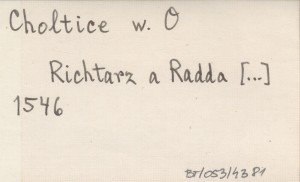 Choltice w. O
Richtarz a Radda [...]
1546
BT/053/4381